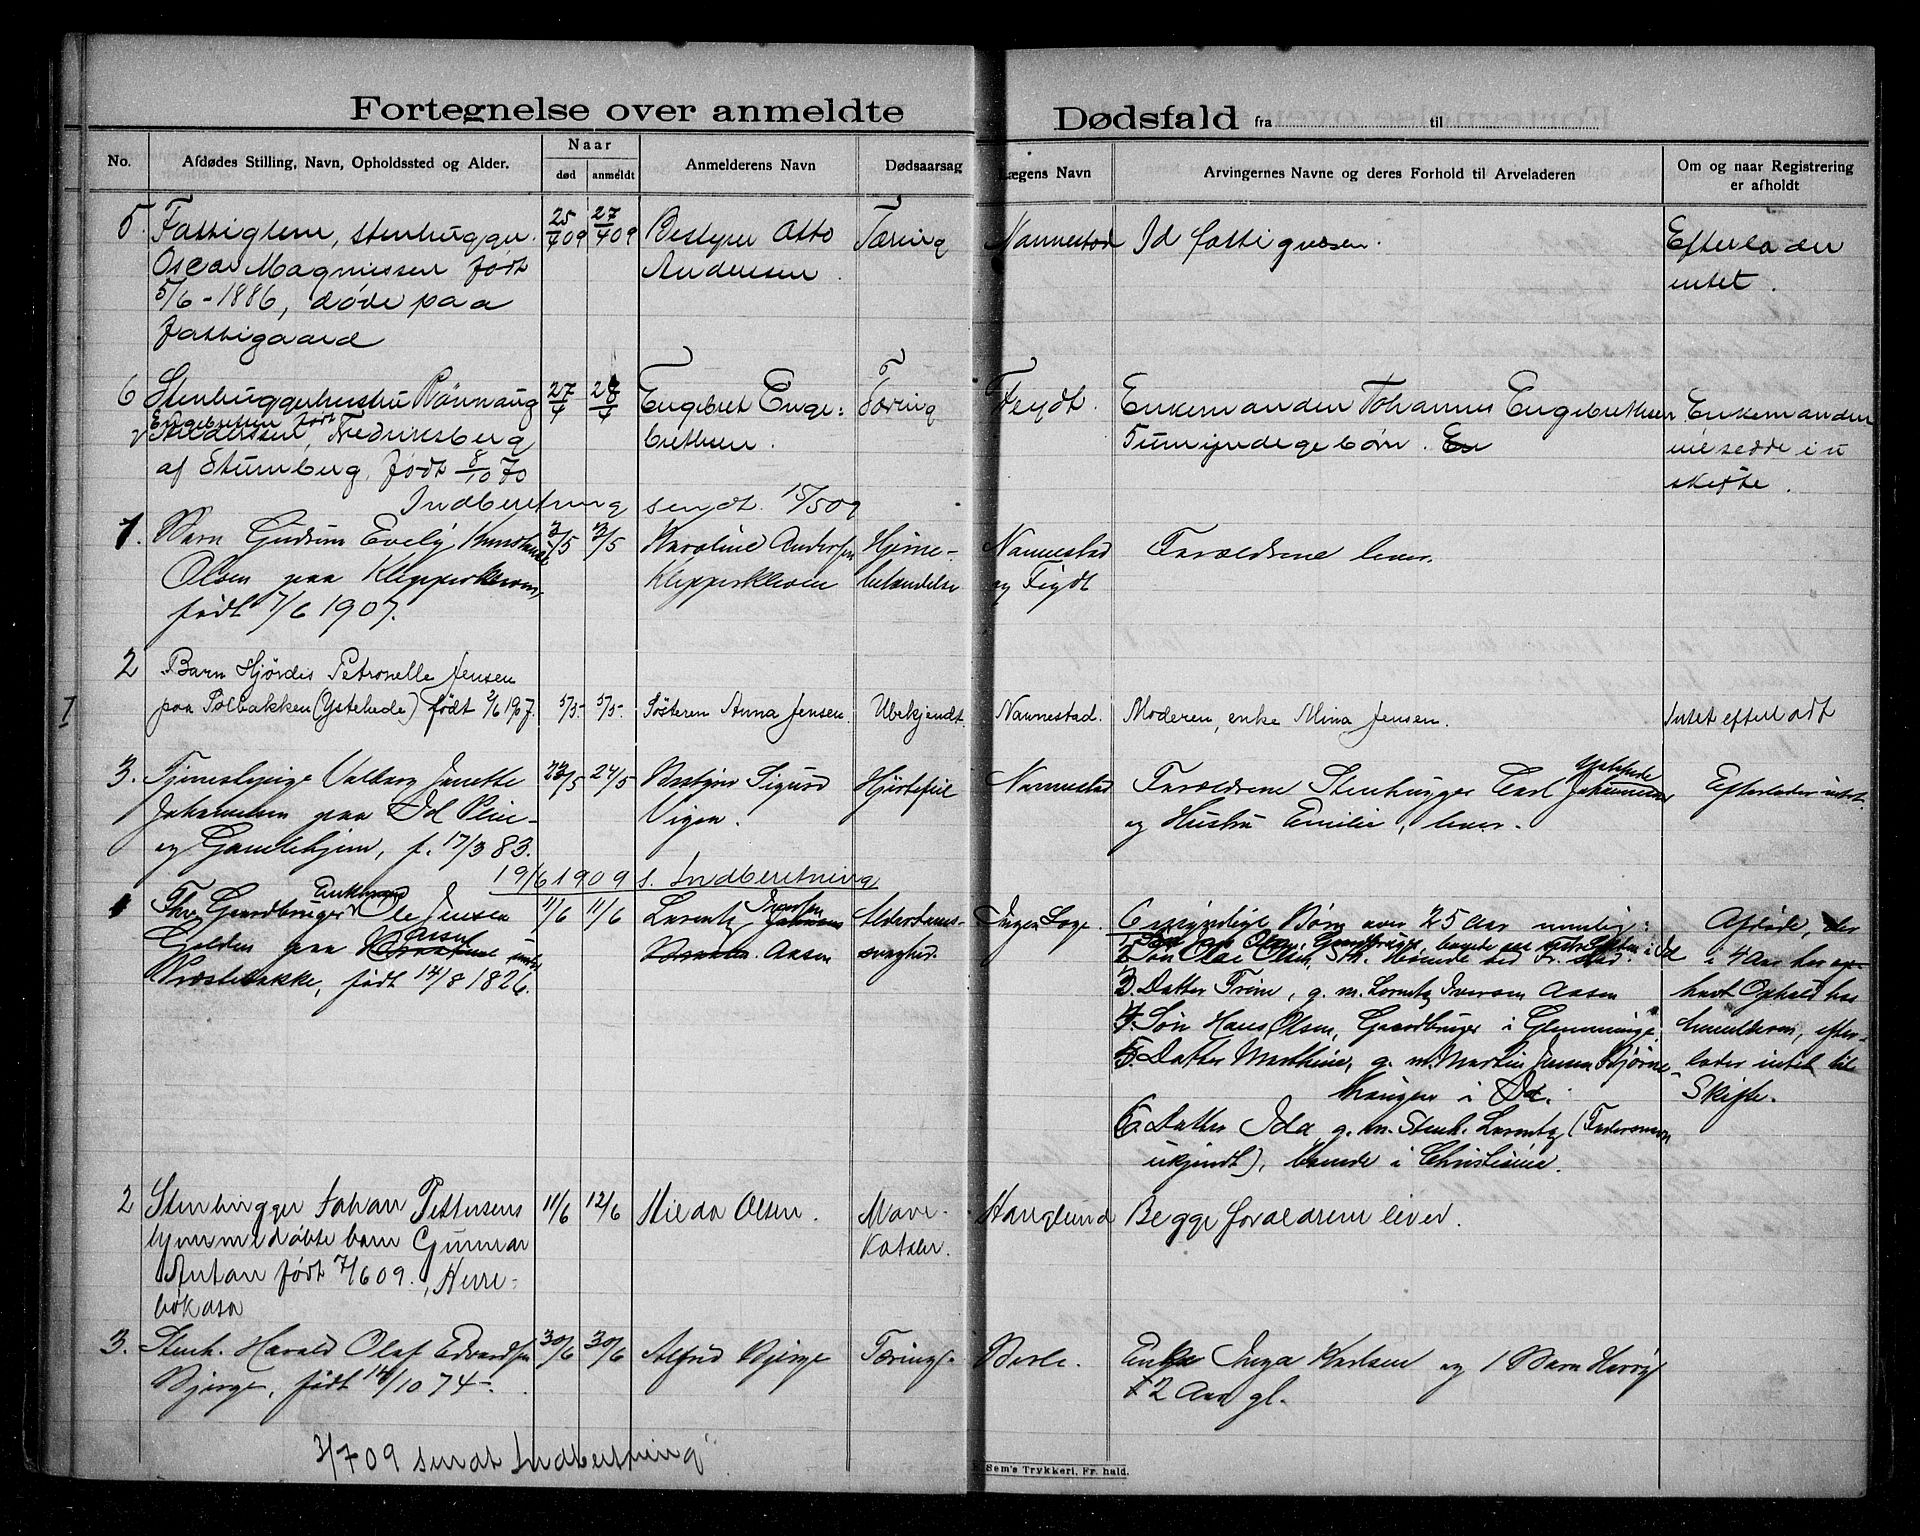 Fortegnelse over anmeldte Dødsfald fra til
No. Afdødes Stilling, Navn, Opholdssted og Alder. Naar død anmeldt Anmelderens Navn Dødsaarsag Lægens Navn Arvingernes Navne og deres Forhold til Arveladeren Om og naar Registrering er afholdt
5. Fattiglem, stenhugger 25/4 09 27/4 09 Bestyrer Otto Tæring Nannestad Id fattigvæsen. Efterlader
Oscar Magnussen født Andersen intet.
5/6-1886, døde paa
fattigaard
6 Stenhuggerhustru Rønnaug 27/4 28/4 Engebret Enge= Tæring Feydt. Enkemanden Johannes Engebrethsen Enkemanden
Engebretsen født
Andersen, Fredriksberg brethsen. 5 umyndige børn. En uiesædde i u
af Stumberg, født 8/10 70 skifte.
Indberetning sendt 15/5 09
1. Barn Gudrun Evely Konstanse 3/5 3/5 Karoline Andersen Hjerne- Nannestad Forældrene lever.
Olsen paa Klepperkleven, Klepperkleven betændelse og Feydt
født 7/6 1907.
2 Barn Hjørdis Petronelle Jensen
paa Polbakken (Ystehede) født 2/6 1907. 5/5- 5/5- Søsteren Anna Jensen. Ubekjendt. Nannestad. Moderen, enke Mina Jensen. Intet efterladt
3. Tjenestepige Valborg Janette 23/5 24/5 Bestyrer Sigurd Hjertefeil Nannestad Forældrene Stenhugger Carl Johannesen Ystehede Efterlader intet.
Johannesen paa Id Pleie- Vigen. og Hustru Emilie, lever.
og Gamlehjem, f. 17/3 83.
19/6 1909 s. Indberetning
1 Fhv Gaardbruger Enkemand Ole Jensen 11/6 11/6 Lorentz Iversen Alderdoms- Ingen Læge. 6 myndige Børn over 25 Aar nemlig: Afdøde, der
Golden paa Aasen under Aasen svaghed. i 4 Aar har op-
Præstebakke, født 14/8 1826. 3. Datter Trine, g. m. Lorentz Iversen Aasen havt Ophold hos
4. Søn Hans Olsen, Gaardbruger i Glemminge. anmelderen, efter-
5. Datter Mathine, g. m. Martin Jensen Bjørne- lader intet til
haugen i Id. Skifte.
6. Datter Ida g. m. Stenh. Lorentz (Fadersnavn
ukjendt), boende i Christiania.
2 Stenhugger Johan Pettersens 11/6 12/6 Hilda Olsen. Mave- Hauglund Begge forældrene lever.
hjemmedøbte barn Gunnar Katahr.
Anton født 7/6 09., Herre-
bøkasa
3. Stenh. Harald Olaf Edvardsen 30/6 30/6 Alfred Bjerge Tæring Berle. Enke Inga Karlsen og 1 Barn Harry
Bjerge, født 14/10 74- 2 Aar gl.
3/7 09 sendt Indberetning
Sem's Trykkeri, Fr.hald.